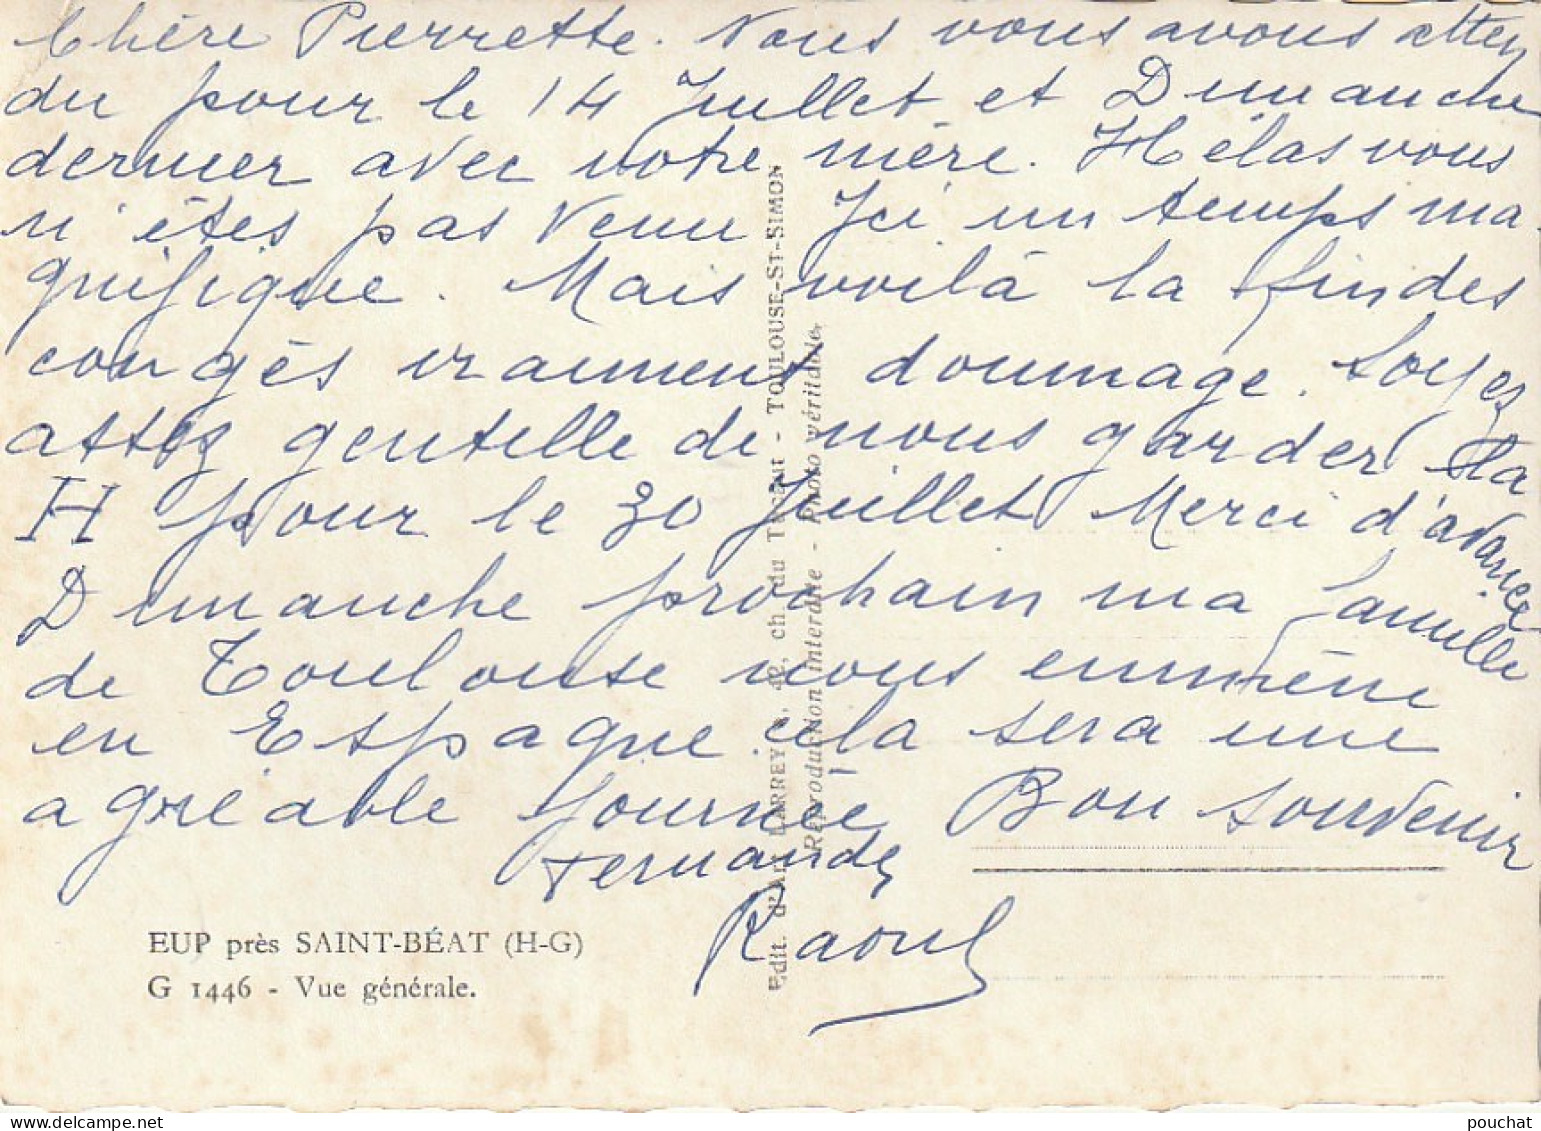 Chère Pierrette. Nous vous avons atten
du pour le 14 Juillet et Dimanche
dernier avec votre mère. Hélas vous
n'êtes pas venu Ici un temps ma-
gnifique. Mais voilà la fin des
congés vraiment dommage. Soyez
assez gentille de nous garder
H pour le 30 Juillet Merci d'avance
Dimanche prochain ma famille
de Toulouse nous emmène
en Espagne cela sera une
agréable journée Bon souvenir
Fernande
Raoul
EUP près SAINT-BÉAT (H-G)
G 1446 - Vue générale.
Edit. d'Art LARREY, 42, ch. du Tucaut - TOULOUSE-ST-SIMON
Reproduction interdite - Photo véritable.
pouchat